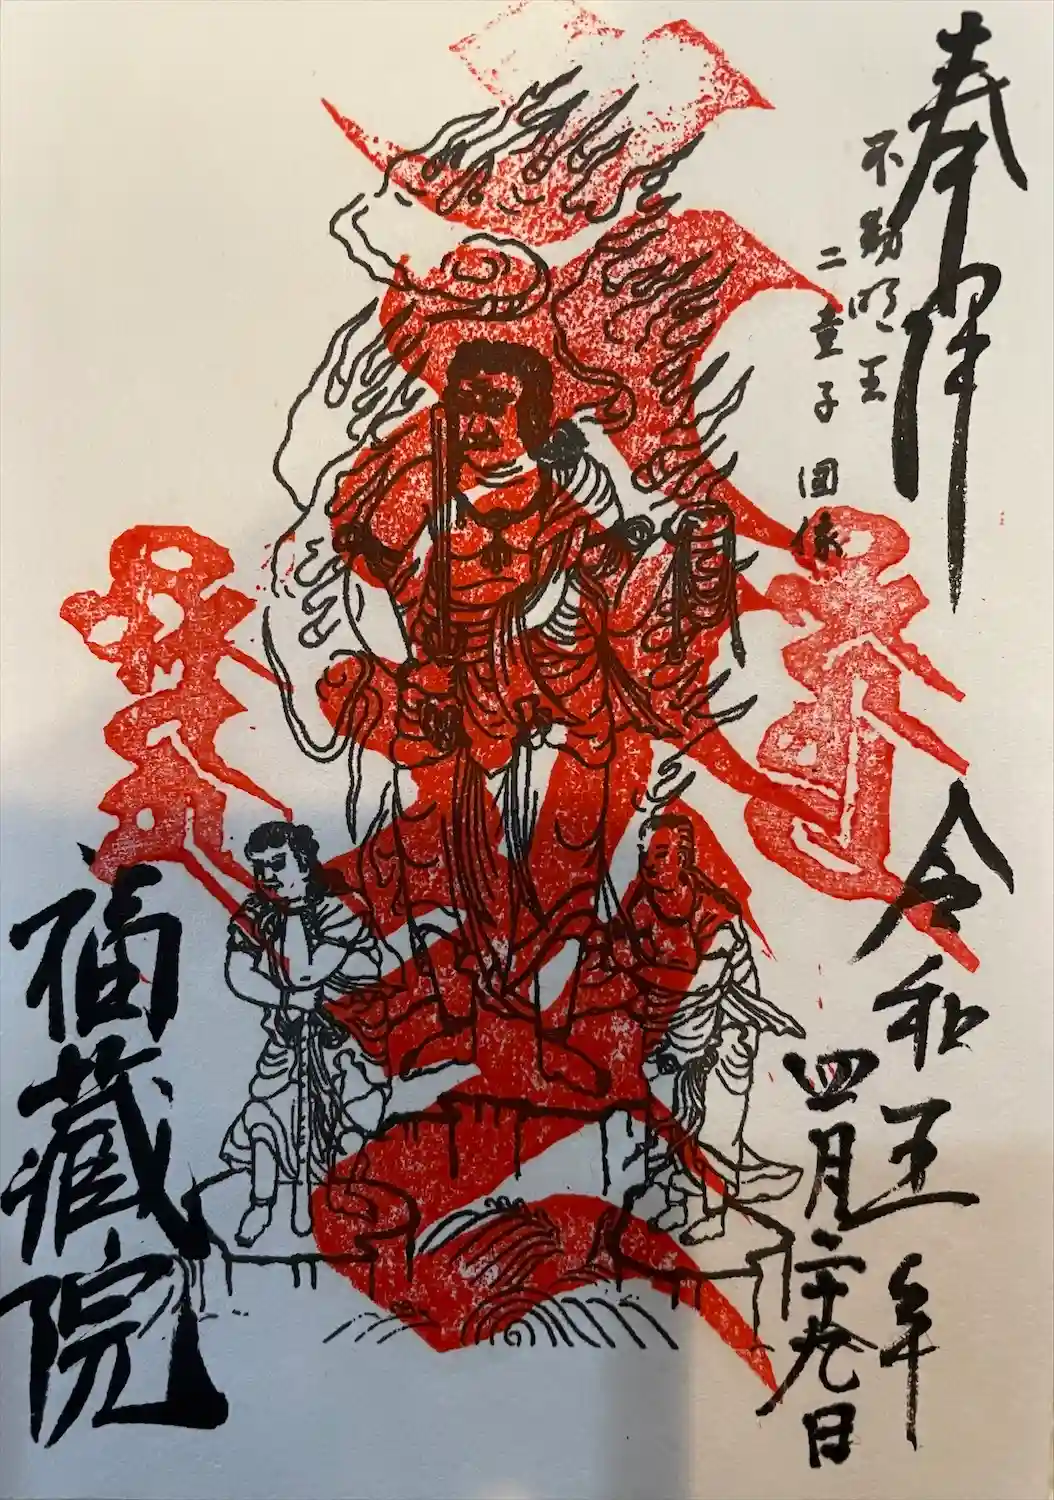 奉拝
不動明王
二童子 圖像
令和五年
四月二十九日
福蔵院